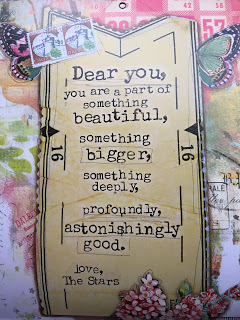 Dear you,
you are a part of
something
beautiful,
something
bigger,
16
16
something
deeply,
profoundly,
astonishingly
good.
love,
The Stars